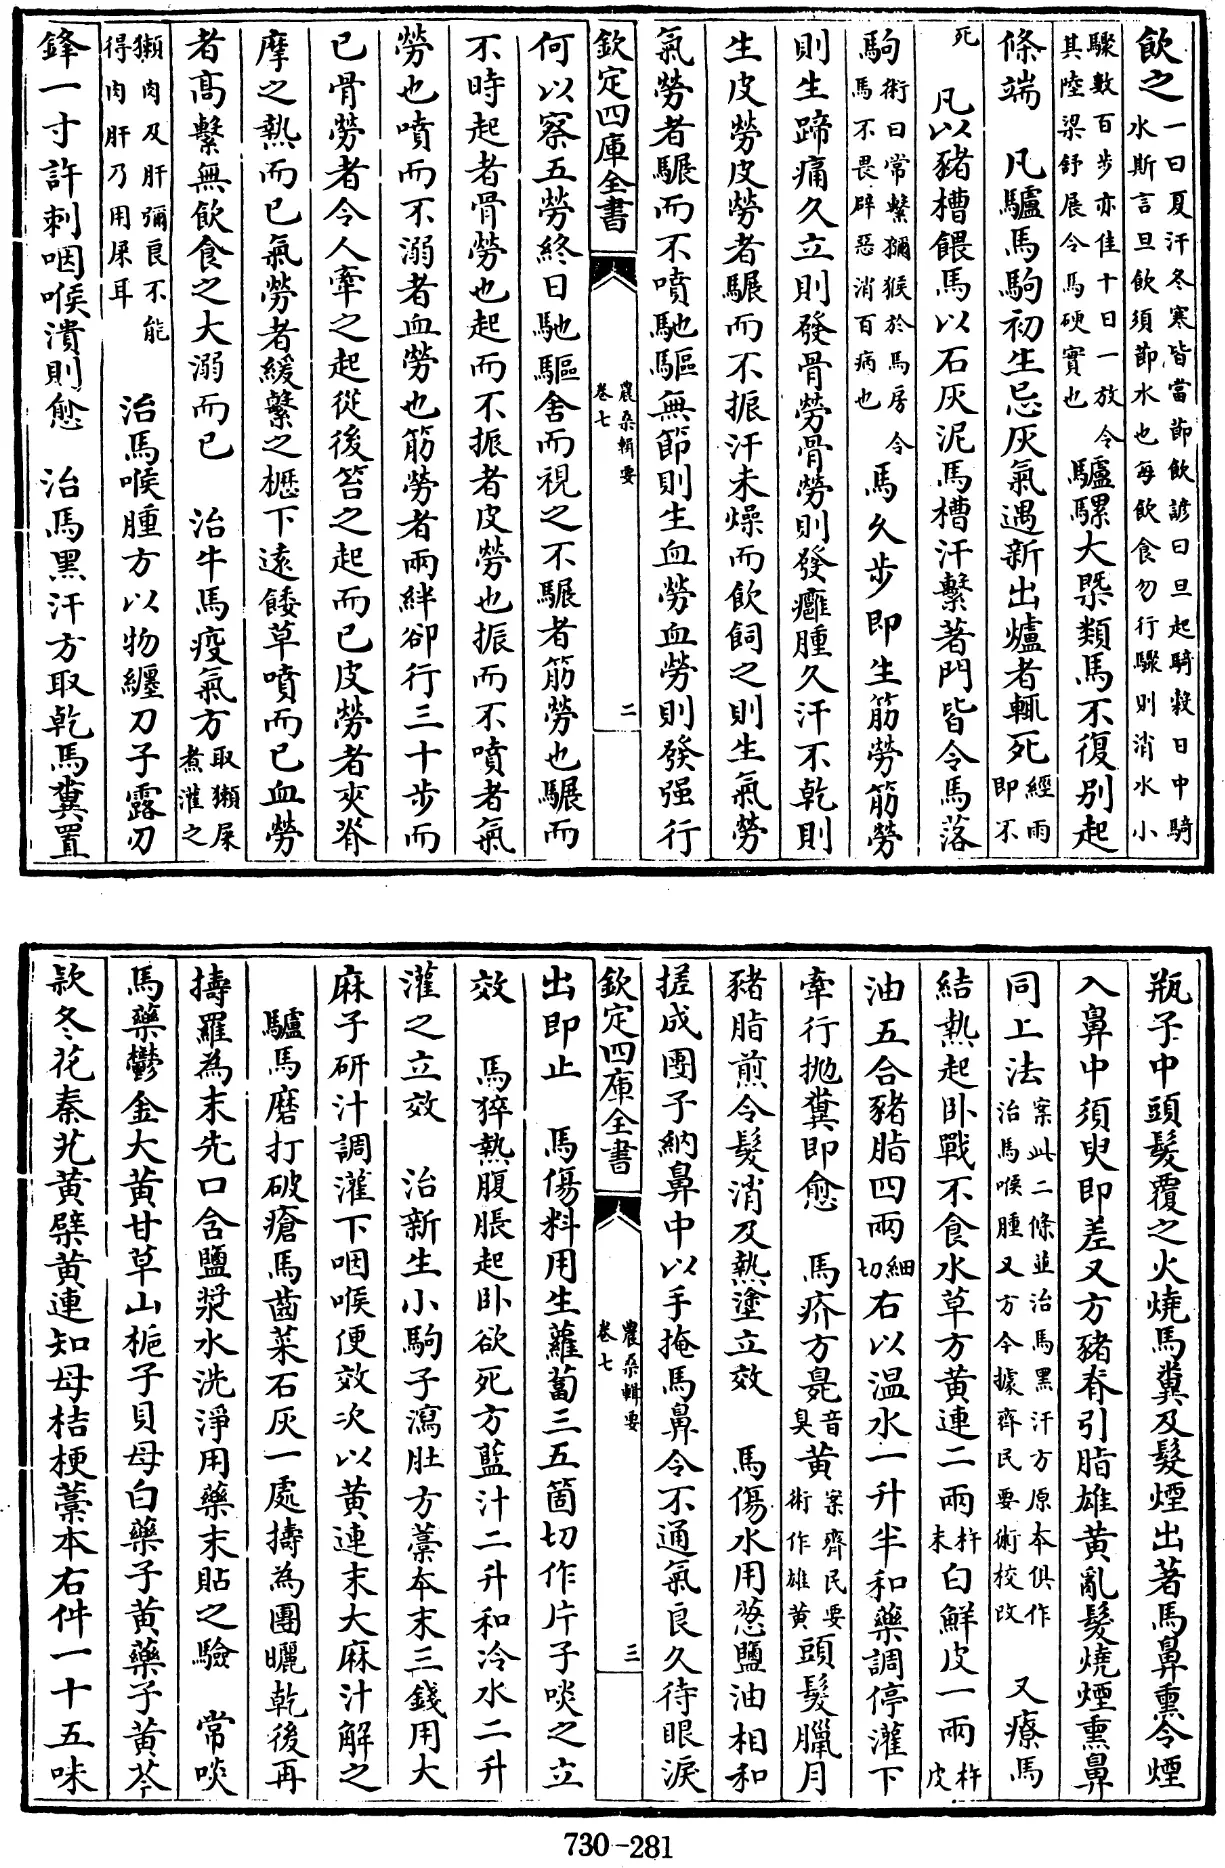 飲之一曰夏汗冬寒皆當節飲諺曰旦起騎穀日中騎水斯言旦飲須節水也每飲食勿行驟則消水小
驟數百步亦佳十日一放令其陸梁舒展令馬硬實也驢騾大槩類馬不復別起
條端　凡驢馬駒初生忌灰氣遇新出爐者輒死經雨即不
死　凡以豬槽餵馬以石灰泥馬槽汗繫著門皆令馬落
駒術曰常繫獼猴於馬房令馬不畏辟惡消百病也馬久步即生筋勞筋勞
則生蹄痛久立則發骨勞骨勞則發癰腫久汗不乾則
生皮勞皮勞者驏而不振汗未燥而飲飼之則生氣勞
氣勞者驏而不噴馳驅無節則生血勞血勞則發强行
欽定四庫全書　農桑輯要卷七　二
何以察五勞終日馳驅舍而視之不驏者筋勞也驏而
不時起者骨勞也起而不振者皮勞也振而不噴者氣
勞也噴而不溺者血勞也筋勞者兩絆卻行三十步而
已骨勞者令人牽之起從後笞之起而已皮勞者夾脊
摩之熱而已氣勞者緩繫之櫪下遠餧草噴而已血勞
者高繫無飲食之大溺而已　治牛馬疫氣方取獺屎煮灌之
獺肉及肝彌良不能得肉肝乃用屎耳　治馬喉腫方以物纏刀子露刃
鋒一寸許刺咽喉潰則愈　治馬黑汗方取乾馬糞置
瓶子中頭髮覆之火燒馬糞及髮煙出著馬鼻熏令煙
入鼻中須臾即差又方豬脊引脂雄黃亂髮燒煙熏鼻
同上法案此二條並治馬黑汗方原本俱作治馬喉腫又方今據齊民要術校改　又療馬
結熱起臥戰不食水草方黄連二兩杵末白鮮皮一兩杵皮
油五合豬脂四兩細切右以溫水一升半和藥調停灌下
牽行拋糞即愈　馬疥方臰音臭黄案齊民要術作雄黄頭髮臘月
豬脂煎令髮消及熱塗立效　馬傷水用葱鹽油相和
搓成團子納鼻中以手掩馬鼻令不通氣良久待眼淚
欽定四庫全書　農桑輯要卷七　三
出即止　馬傷料用生蘿蔔三五箇切作片子啖之立
效　馬猝熱腹脹起臥欲死方藍汁二升和冷水二升
灌之立效　治新生小駒子瀉肚方藁本末三錢用大
麻子研汁調灌下咽喉便效次以黄連末大麻汁解之
驢馬磨打破瘡馬齒菜石灰一處擣為團曬乾後再
擣羅為末先口含鹽漿水洗淨用藥末貼之驗　常啖
馬藥鬱金大黄甘草山梔子貝母白藥子黄藥子黄芩
款冬花秦艽黄蘗黄連知母桔梗藁本右件一十五味
730-281